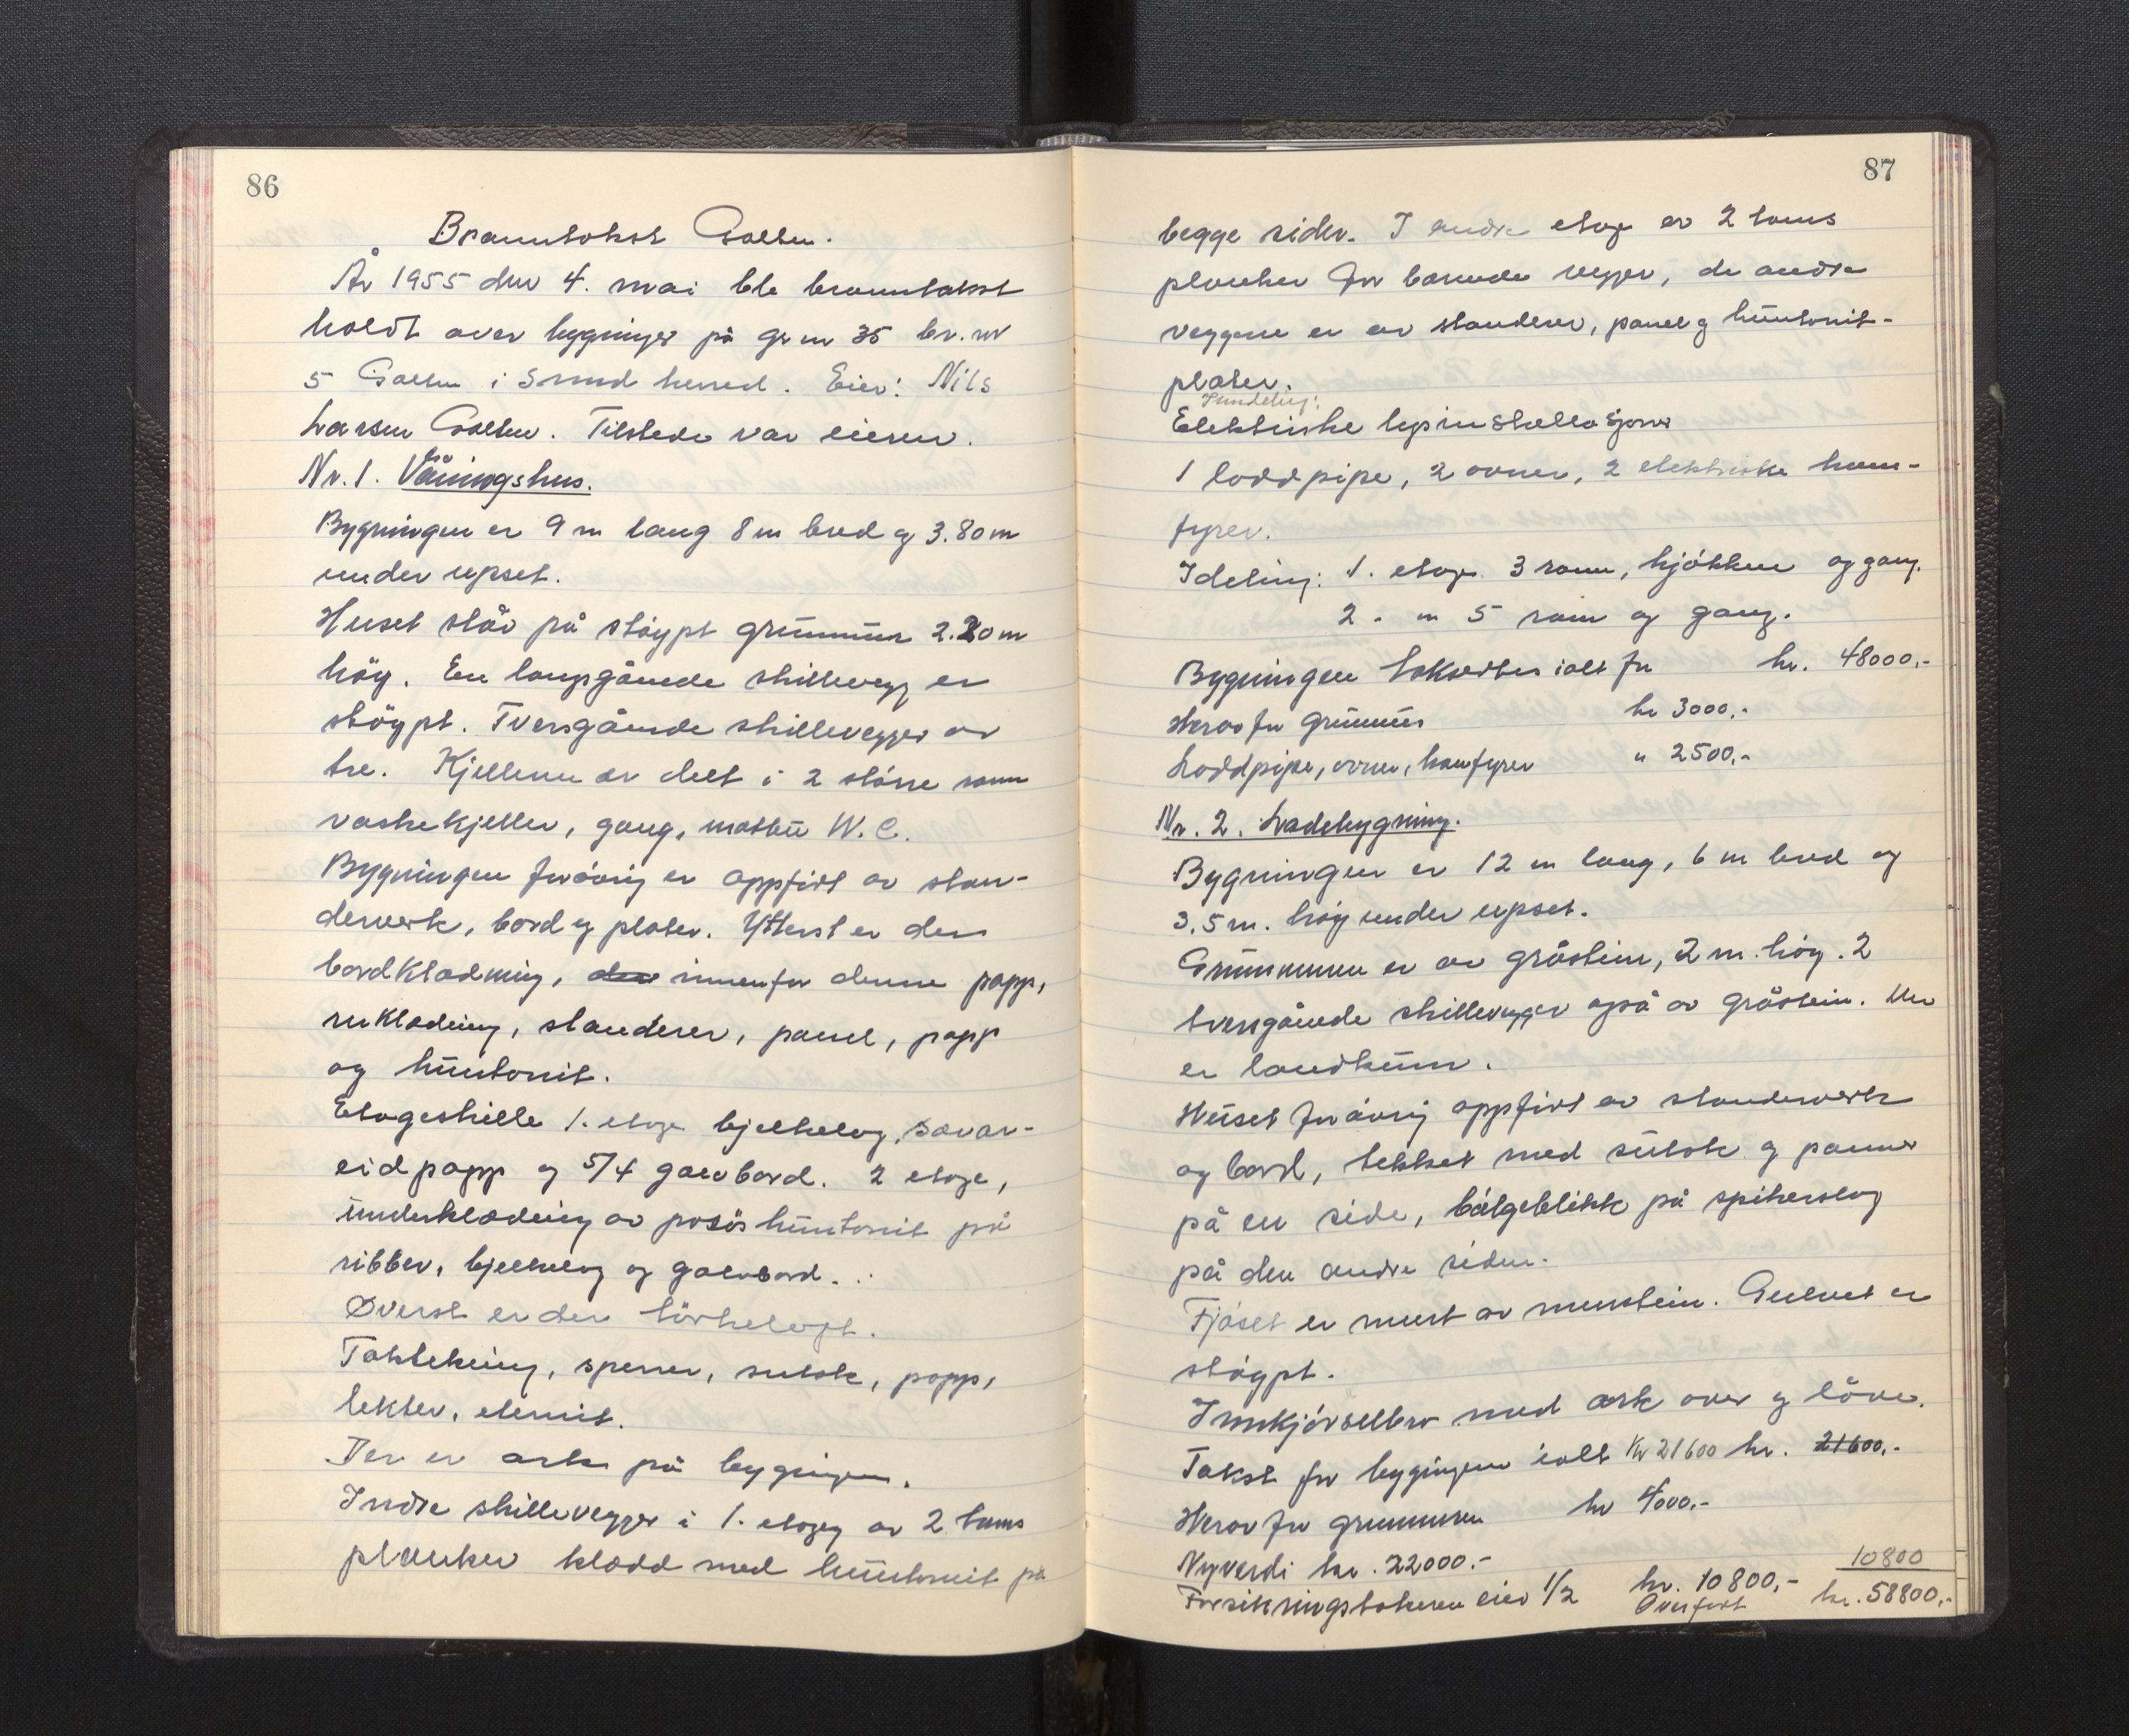 86
Branntakst Golten.
År 1955 den 4. mai ble branntakst
holdt over bygninger på gr nr 35 br. nr
5 Golten i Sund herred. Eier: Nils
Larsen Golten. Tilstede var eieren.
Nr. 1. Våningshus.
Bygningen er 9 m lang 8 m bred og 3.80 m
under upset.
Huset står på støypt grunnmur 2.20 m
høy. En langsgående skillevegg er
støypt. Tversgående skillevegger av
tre. Kjelleren er delt i 2 større rom
vaskekjeller, gang, matbu W.C.
Bygningen forøvrig er oppført av stan-
derverk, bord og plater. Ytterst er der
bordkledning, der innenfor denne papp,
rukledning, standerer, panel, papp
og huntonit.
Etageskille 1. etage bjelkelag, Sævar-
eidpapp og 5/4 golvbord. 2 etage,
underkledning av porøs huntonit på
ribber, bjelkelag og golvbord.
Øverst er der tørkeloft.
Taktekking, sperrer, sutak, papp,
lekter, eternit.
Der er ark på bygningen.
Indre skillevegger i 1. etage av 2 toms
planker kledd med huntonit på
87
begge sider. I andre etage er 2 toms
planker for bærende vegger, de andre
veggene er av standerer, panel og huntonit-
plater.
Innredning:
Elektriske lysinstallasjoner
1 loddpipe, 2 ovner, 2 elektriske kom-
fyrer.
Ideling: 1. etage 3 rom, kjøkken og gang.
2. " 5 rom og gang.
Bygningen takseres ialt for kr. 48000,-
Herav for grunnmur kr 3000,-
Loddpipe, ovner, komfyrer " 2500,-
Nr. 2. Ladebygning.
Bygningen er 12 m lang, 6 m bred og
3,5 m. høy under upset.
Grunnmuren er av gråstein, 2 m. høy. 2
tversgående skillevegger også av gråstein. Der
er landkum.
Huset forøvrig oppført av standerverk
og bord, tekket med sutak og panner
på en side, bølgeblikk på spikerslag
på den andre siden.
Fjøset er murt av murstein. Gulvet er
støypt.
Innkjørselbro med ark over og løve.
Takst for bygningen ialt Kr 21600 kr. 21600,-
Herav for grunnmuren kr 4000,-
Nyverdi kr. 22000.-
10800
Forsikringstakeren eier 1/2 kr. 10800,-
Overført kr. 58800,-